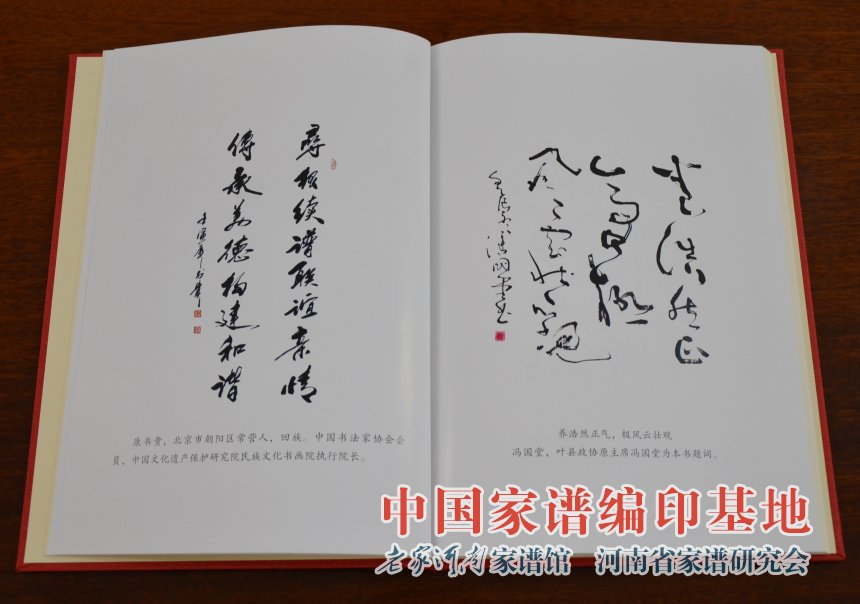 尋根續譜聯誼亲情
傳承美德构建和谐
康书贵，北京市朝阳区常营人，回族。中国书法家协会会
员，中国文化遗产保护研究院民族文化书画院执行院长。
养浩然正气，极风云壮观
冯国堂，叶县政协原主席冯国堂为本书题词。
中国家谱编印基地
老家河南家谱馆 河南省家谱研究会